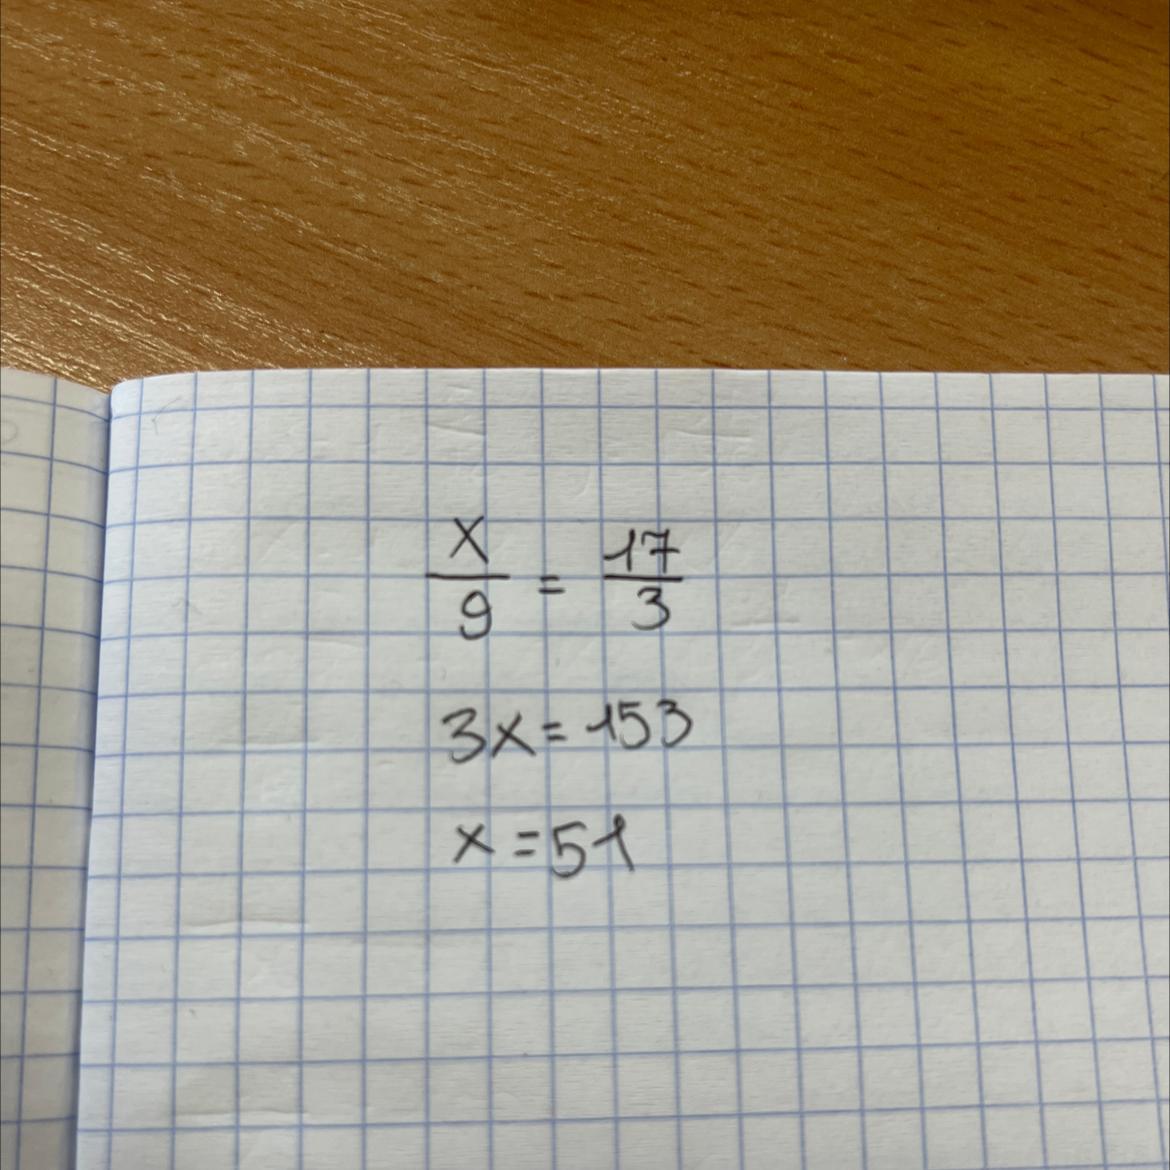 x/9 = 17/3
3x = 153
x = 51